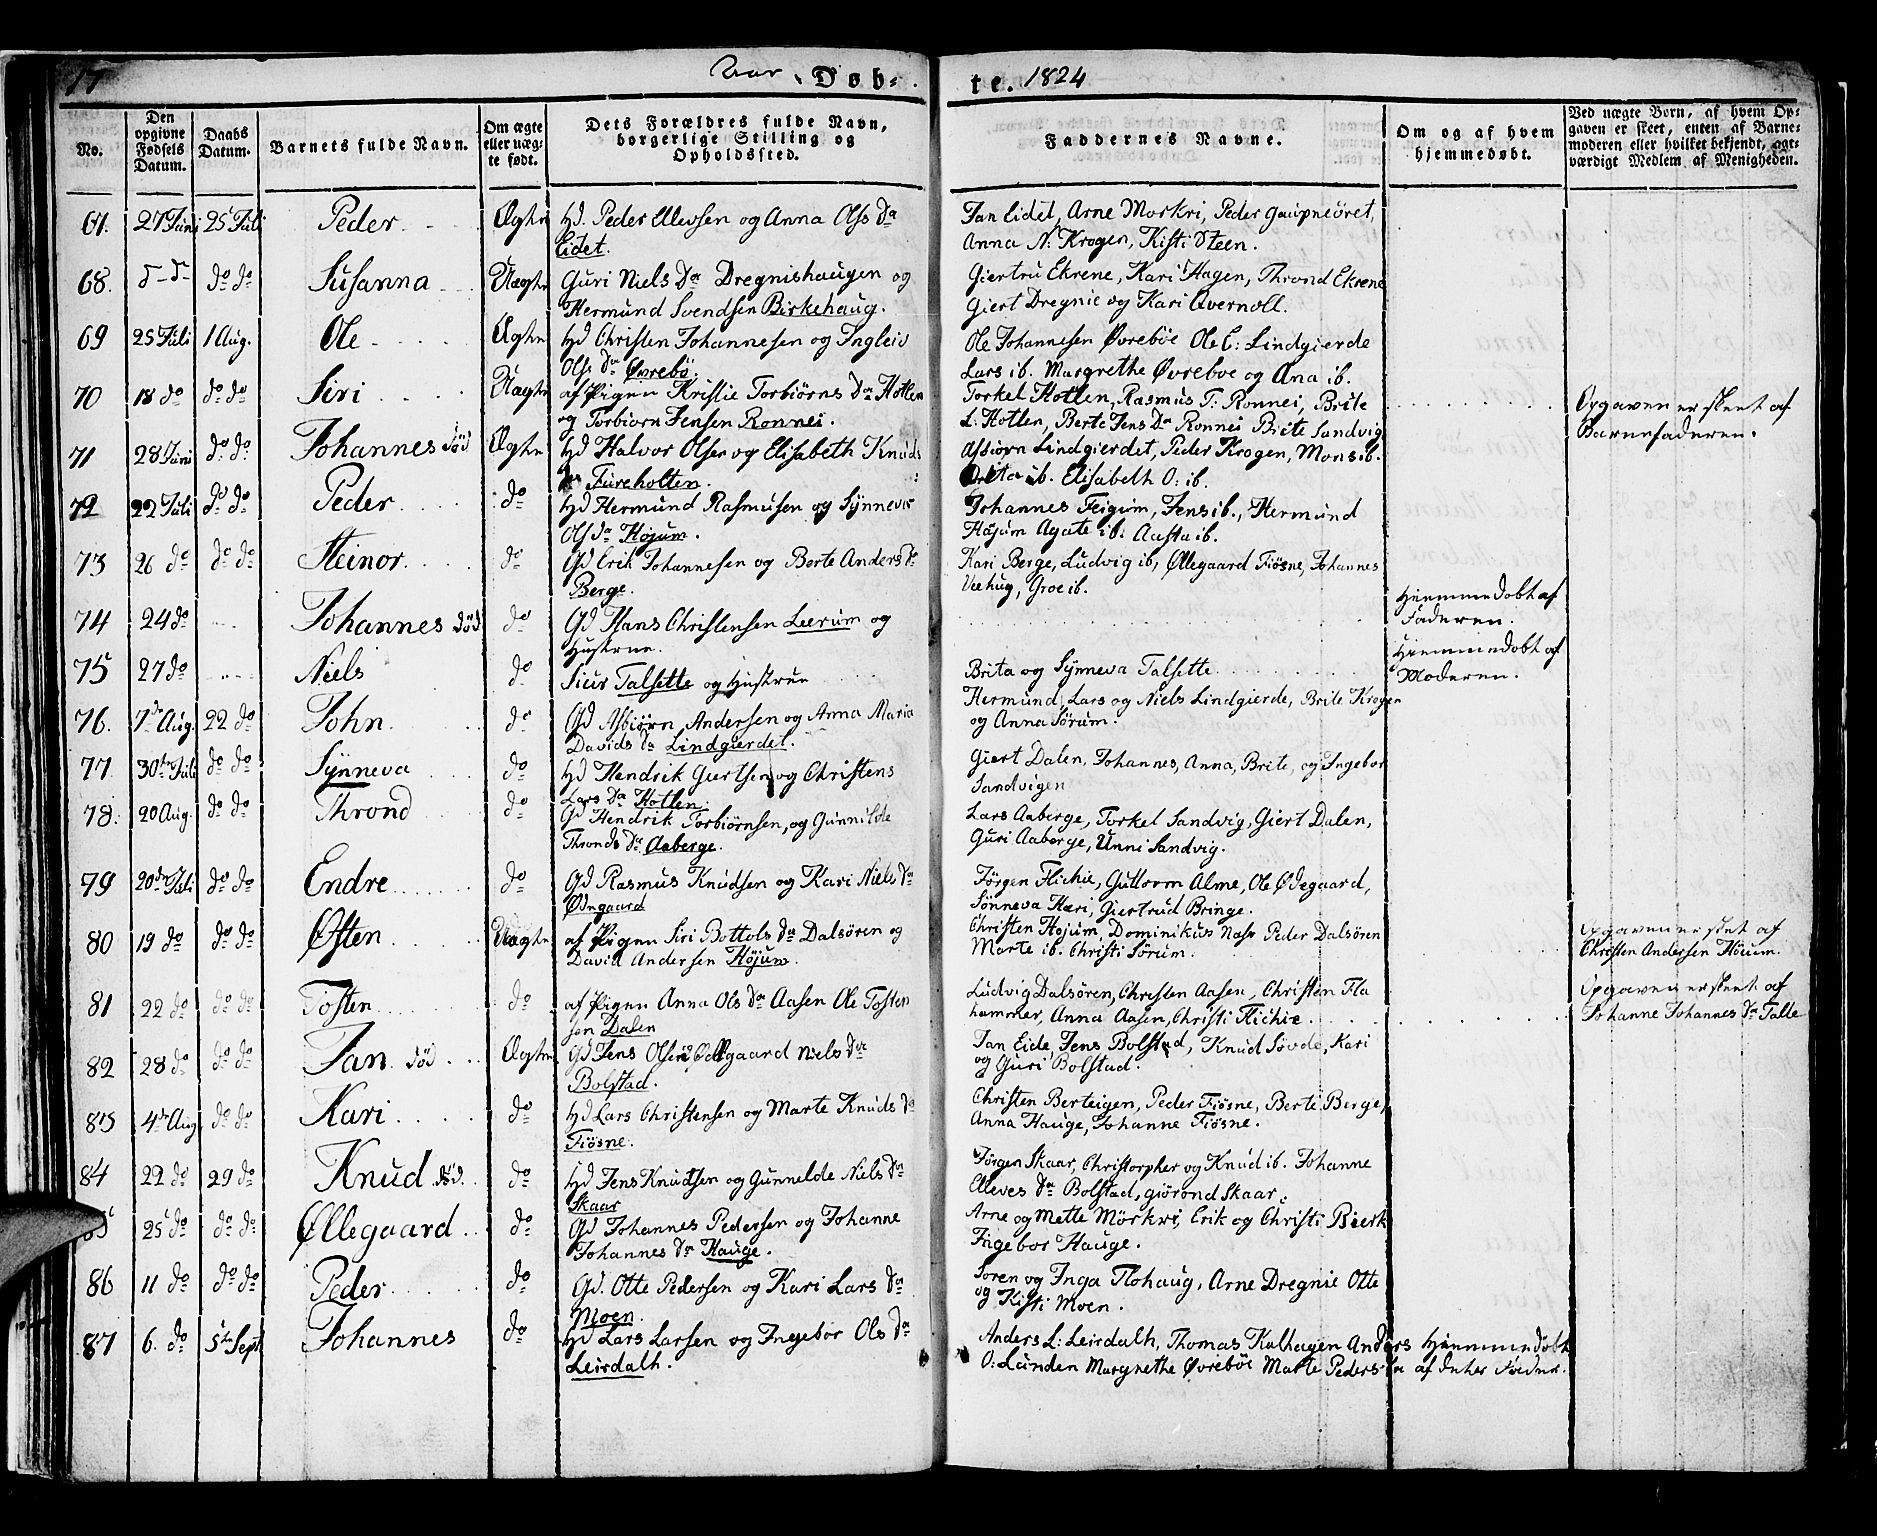 17 Aar Døb- te. 1824
No.
Den opgivne Fødsels Datum.
Daabs Datum.
Barnets fulde Navn.
Om ægte eller uægte født.
Dets Forældres fulde Navn, borgerlige Stilling og Opholdssted.
Faddernes Navne.
Om og af hvem hjemmedøbt.
Ved uægte Børn, af hvem Opgaven er skeet, enten af Barnemoderen eller hvilket bekjendt, agtværdigt Medlem af Menigheden.
67. 27 Juni 25 Juli Peder Ægte Hd. Peder Ellevsen og Anna Ols Da Jan Eidet, Arne Morkri, Peder Gaupneöret,
Eidet. Anna N. Krogen, Kisti Steen.
68. do do do do Susanna Uægte Guri Niels Da Dregnishaugen og Giertru Ekrene, Kari Hagen, Thrond Ekrene
Hermund Svendsen Birkehaug. Giert Dregnie og Kari Qvernoll.
69 25 Juli 1 Aug. Ole Ægte Hd Christen Johannesen og Ingleiv Ole Johannesen Øvrebøe Ole E: Lindgierde
Ols Da Øvrebö. Lars ib. Margrethe Øvreboe og Ana ib.
70 18 do do do Siri Uægte af Pigen Kristie Torbiørns Da Hotlen Torkel Hotlen, Rasmus T: Ronnei, Brite Opgaven er skeet af
og Torbiørn Jensen Ronnei. L: Hotlen, Berte Jens Da Ronnei Brite Sandvig Barnefaderen.
71 28 Juni do do Johannes död Ægte Hd Halvor Olsen og Elisabeth Knuds Asbiörn Lindgierdet, Peder Krogen, Mons ib.
Da Fureholten. ib. Elisabeth O: ib.
72 22 Juli do do Peder do Hd Hermund Rasmusen og Synneve Johannes Feigum, Jens ib., Hermund
Ols Da Hojum. Höjum Agate ib: Aasta ib.
73 26 do do do Steinor do Gd Erik Johannesen og Berte Anders Da Kari Berge, Ludvig ib, Øllegaard Fiösne, Johannes
Berge. Veehug, Groe ib.
74 24 do Johannes död do Gd Hans Christensen Leerum og Hiemmedobt af
Hustrue. Faderen.
75 27 do Niels do Siur Talsette og Hustrue Brita og Synneva Talsette Hiemmedobt af
Moderen.
76. 7de Aug. 22 do John do Gd Asbiørn Andersen og Anna Maria Hermund, Lars og Niels Lindgierde, Brite Krogen
Davids Da Lindgierdet. og Anna Sørum.
77 30te Juli do do Synneva do Hd Hendrik Giertsen og Christens Giert Dalen, Johannes, Anna, Brite, og Ingebor
Lars Da Hotlen. Sandvigen
78. 20 Aug. do do Thrond do Gd Hendrik Torbiörnsen, og Gunnilde Lars Aaberge, Torkel Sandvig, Giert Dalen,
Thronds Da Aaberge. Guri Aaberge, Unni Sandvig.
79 20de Juli do do Endre do Gd Rasmus Knudsen og Kari Niels Da Jörgen Flichie, Guttorm Alme, Ole Ødegaard,
Ødegaard Sönneva Hæri, Giertrud Bringe.
80 19 do do do Østen Uægte af Pigen Siri Bottols Da Dalsören og Christen Hojum, Dominikus Næss Peder Dalsören Opgaven er skeet af
David Andersen Höjum. Marte ib. Christi Sörum. Christen Andersen Höium.
81 22 do do do Tosten do af Pigen Anna Ols Da Aasen Ole Tosten Ludvig Dalsören, Christen Aasen, Christen Fla Opgaven er skeet af
sen Dalen hammer, Anna Aasen, Christi Flichie Johanne Johannes Da Talle
82 28 do do do Jan död Ægte Gd Jens Olsen Ødlgaard Niels Da Jan Eide, Jens Bolstad, Knud Søvde, Kari
Bolstad. og Guri Bolstad.
83 4de Aug do do Kari do Hd Lars Christensen og Marte Knuds Da Christen Berteigen, Peder Fiösne, Berte Berge,
Fiösne. Anna Hauge, Johanne Fiösne.
84 22 do 29 do Knud död do Hd Jens Knudsen og Gunnelde Niels Da Jörgen Skaar, Christopher og Knud ib. Johanne
Skaar Elleves Da Bolstad, giörond Skaar.
25 do do do Øllegaard do Gd Johannes Pedersen og Johanne Arne og Mette Mörkri, Erik og Christi Bierk
Johannes Da Hauge. Ingebor Hauge.
86 11 do do do Peder do Gd. Otte Pedersen og Kari Lars Da Soren og Inga Flohaug, Arne Dregnie Otte
Moen. og Kisti Moen.
87 6. do 5te Sept Johannes do Hd Lars Larsen og Ingebor Ols Da Anders L: Leirdalh, Thomas Kalhagen Anders Hiemmedøbt
Leirdalh. O: Lunden Margrethe Øvreböe Marte Peders Da af dets Fader.